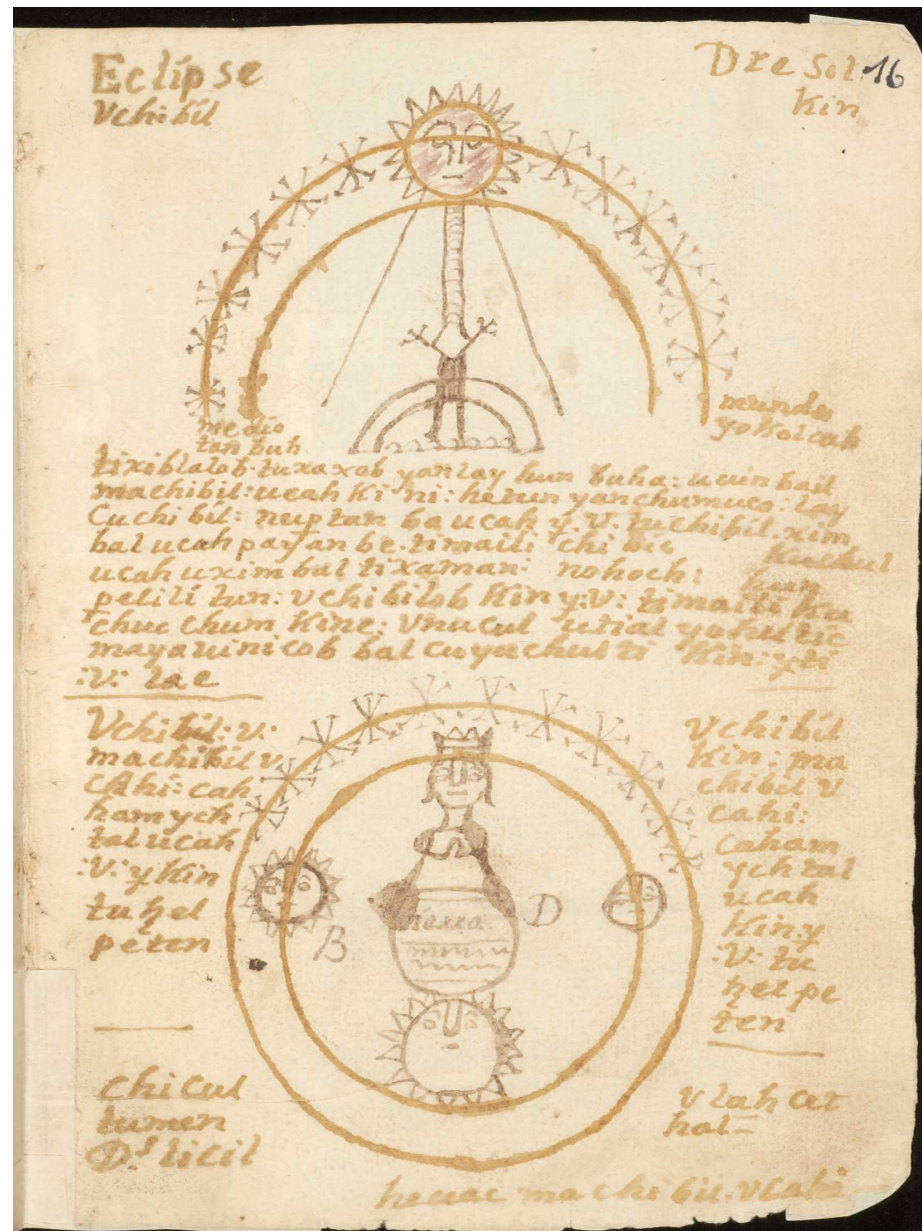 Eclipse
Vchibil
Dre Sol 16
Kin
medio
tan buh
mundo
yokolcah
tixiblalob tuxaxob yanlay hun buha: uuinbail
machibil: ucah Ki ni: hetun yanchumuco: lay
Cuchi bil: nuptan ba ucah y. V: tuchibil. xim
bal ucah paytan be. timaili chi bic
Kuchul
ucah uxim bal tixaman: nohoch:
kun
pelili tun: Vchibilob Kin y: V: timaili Ku
chuc chum Kine: Vnucul utial yoheltic
mayauinicob bal cuyuchul ti Kin: y ti
:V: lae
Vchibil: V:
machibil v
cahi: cah
hamych
tal ucah
:V: y Kin
tu hel
peten
B
D
tierra
Vchibil
Kin: ma
chibil V
cahi:
caham
ych tal
ucah
Kin y
:V: tu
hel pe
ten
chicul
tumen
Ds licil
v lah cet
hal
heuac ma chi bil. Vcahi